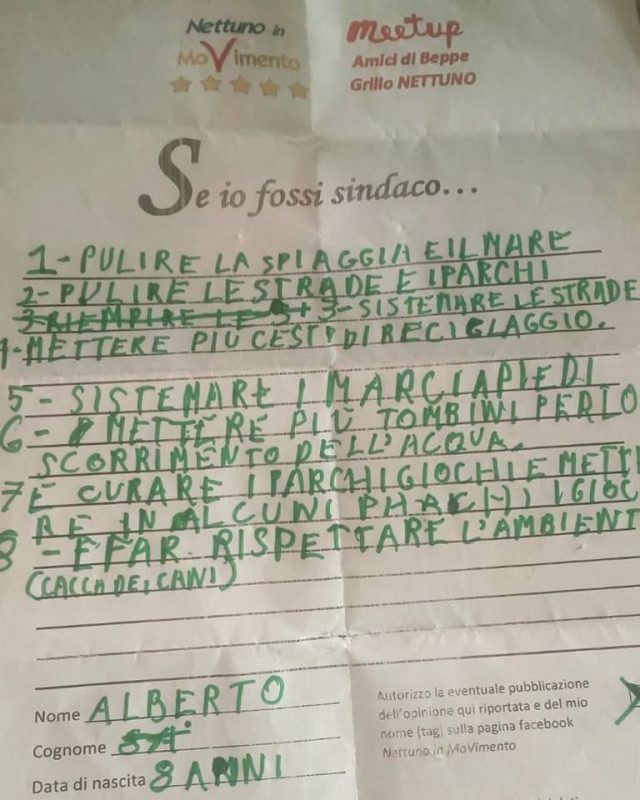 Nettuno in
MoVimento
meetup
Amici di Beppe
Grillo NETTUNO
Se io fossi sindaco...
1-PULIRE LA SPIAGGIA E IL MARE
2-PULIRE LE STRADE E I PARCHI
3-RIEMPIRE LE 3-SISTEMARE LE STRADE
4-METTERE PIÙ CESTI DI RECIGLAGGIO.
5-SISTEMARE I MARCIAPIEDI
6- METTERE PIÙ TOMBINI PER LO
SCORRIMENTO DELL'ACQUA.
7 E CURARE I PARCHI GIOCHI E METTE
RE IN ALCUNI PHACHI I GIOC
8 - E FAR RISPETTARE L'AMBIENT
(CACCA DEI CANI)
Nome ALBERTO
Cognome
Data di nascita 8 ANNI
Autorizzo la eventuale pubblicazione
dell'opinione qui riportata e del mio
nome (tag) sulla pagina facebook
Nettuno in MoVimento